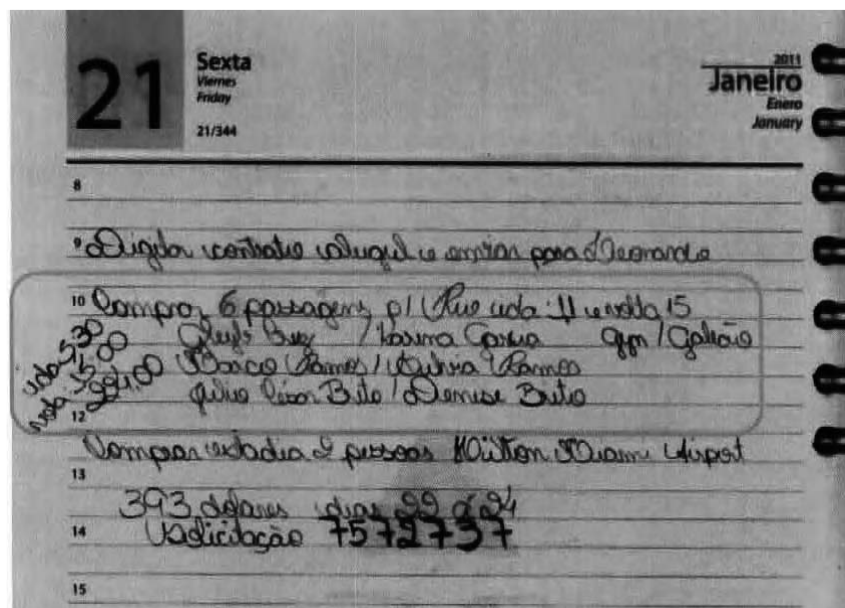 21
Sexta
Viernes
Friday
21/344
2011
Janeiro
Enero
January
8
9 Digitar contrato aluguel e enviar para Leonardo
10 Comprar 6 passagens p/ Rio ida 11 e volta 15
Gleyb Cruz / Karina Garcia gyn / Galeão
ida 5:30
Marco Ramos / Sylvia Ramos
volta 
224,00
Julio César Brito / Denise Brito
12
Comprar estadia 2 pessoas Hilton Miami Airport
13
393 dolares dias 22 a 24
14 Solicitação 7572737
15